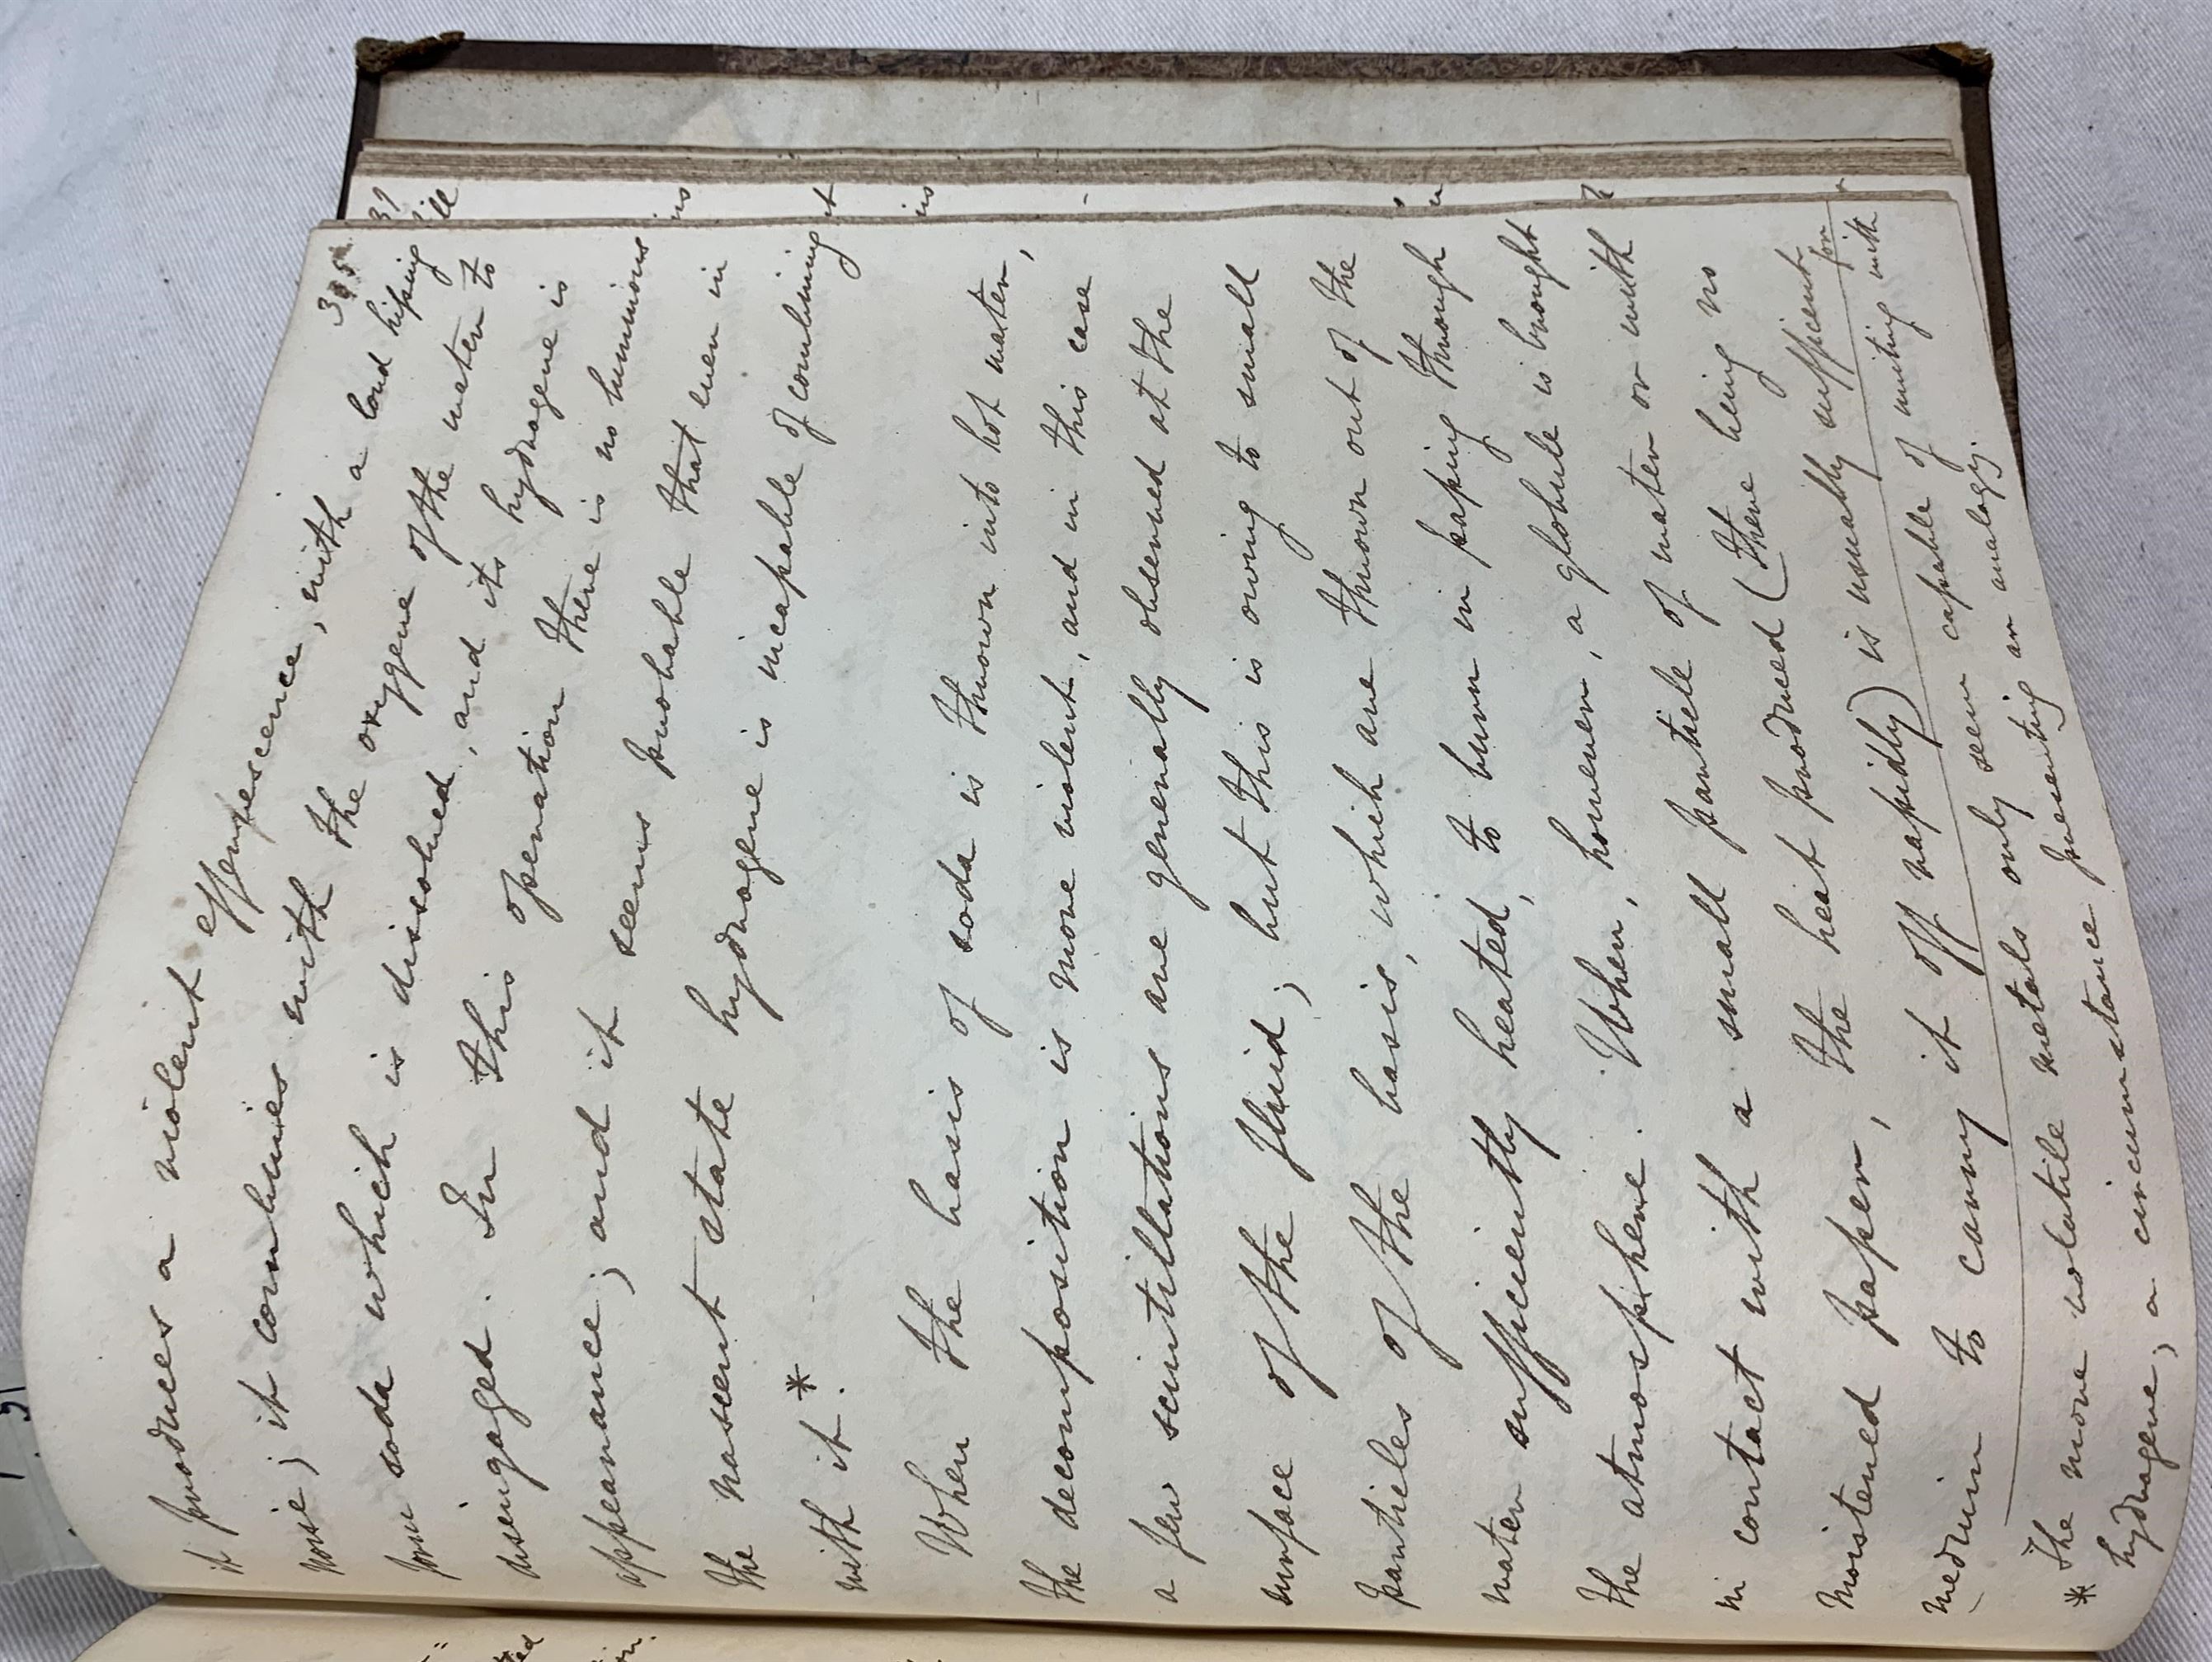 it produces a violent effervescence, with a loud hissing
noise; it combines with the oxygene of the water to
form soda which is dissolved, and its hydrogene is
disengaged. In this operation there is no luminous
appearance; and it seems probable that even in
the nascent state hydrogene is incapable of combining
with it.*
When the basis of soda is thrown into hot water,
the decomposition is more violent, and in this case
a few scintillations are generally observed at the
surface of the fluid; but this is owing to small
particles of the basis, which are thrown out of the
water sufficiently heated, to burn in passing through
the atmosphere. When, however, a globule is brought
in contact with a small particle of water or with
moistened paper, the heat produced (there being no
medium to carry it off rapidly) is usually sufficient for
* The more volatile metals only seem capable of uniting with
hydrogene; a circumstance presenting an analogy.